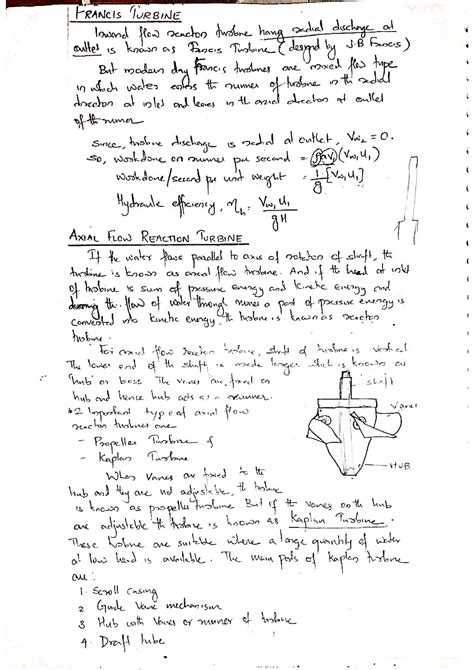 FRANCIS TURBINE
Inward flow reaction turbine having radial discharge at
outlet is known as Francis Turbine (designed by J.B Francis)
But modern day Francis turbines are mixed flow type
in which water enters the runner of turbine in the radial
direction at inlet and leaves in the axial direction at outlet
of the runner
Since, turbine discharge is radial at outlet, Vw₂ = 0.
So, Workdone on runner per second = ρav₁(Vw₁u₁)
Workdone/second per unit weight = 1/g [Vw₁u₁]
Hydraulic efficiency, ηh = Vw₁u₁ / gH
AXIAL FLOW REACTION TURBINE
If the water flows parallel to axis of rotation of shaft, the
turbine is known as axial flow turbine. And if the head at inlet
of turbine is sum of pressure energy and kinetic energy and
during the flow of water through runner a part of pressure energy is
converted into kinetic energy, the turbine is known as reaction
turbine.
For axial flow reaction turbine, shaft of turbine is vertical
The lower end of the shaft is made larger which is known as
'hub' or boss The vanes are fixed on
hub and hence hub acts as a runner.
2 Important type of axial flow
reaction turbines are
- Propeller Turbine &
- Kaplan Turbine
When vanes are fixed to the
hub and they are not adjustable, the turbine
is known as propeller turbine. But if the vanes on the hub
are adjustable the turbine is known as Kaplan Turbine.
These turbine are suitable where a large quantity of water
at low head is available. The main parts of kaplan turbine
are:
1. Scroll casing
2 Guide Vane mechanism
3 Hub with Vanes or runner of turbine
4. Draft tube
shaft
Vanes
HUB